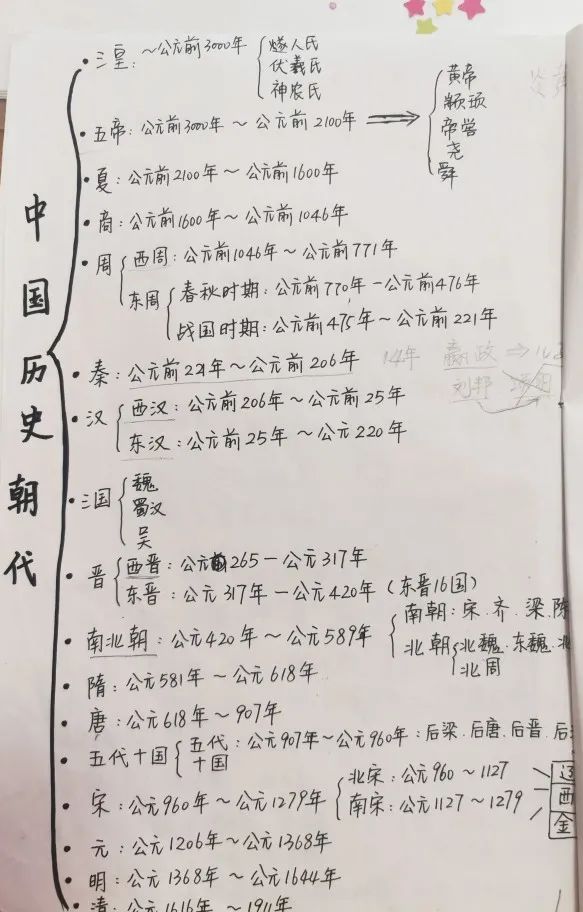 中国历史朝代
• 三皇: ~公元前3000年 { 燧人氏
伏羲氏
神农氏
• 五帝: 公元前3000年 ~ 公元前2100年 ⇒ { 黄帝
颛顼
帝喾
尧
舜
• 夏: 公元前2100年 ~ 公元前1600年
• 商: 公元前1600年 ~ 公元前1046年
• 周 { 西周: 公元前1046年 ~ 公元前771年
东周 { 春秋时期: 公元前770年 - 公元前476年
战国时期: 公元前475年 ~ 公元前221年
• 秦: 公元前221年 ~ 公元前206年 14年 嬴政 ⇒
刘邦
• 汉 { 西汉: 公元前206年 ~ 公元前25年
东汉: 公元前25年 ~ 公元220年
• 三国 { 魏
蜀汉
吴
• 晋 { 西晋: 公元265 - 公元317年
东晋: 公元317年 - 公元420年 (东晋16国)
• 南北朝: 公元420年 ~ 公元589年 { 南朝: 宋.齐.梁.陈
北朝 { 北魏.东魏.北
北周
• 隋: 公元581年 ~ 公元618年
• 唐: 公元618年 ~ 907年
• 五代十国 { 五代: 公元907年 ~ 公元960年: 后梁.后唐.后晋.后
十国
• 宋: 公元960年 ~ 公元1279年 { 北宋: 公元960 ~ 1127
南宋: 公元1127 ~ 1279
辽
西
金
• 元: 公元1206年 ~ 公元1368年
• 明: 公元1368年 ~ 公元1644年
• 清: 公元1616年 ~ 1911年